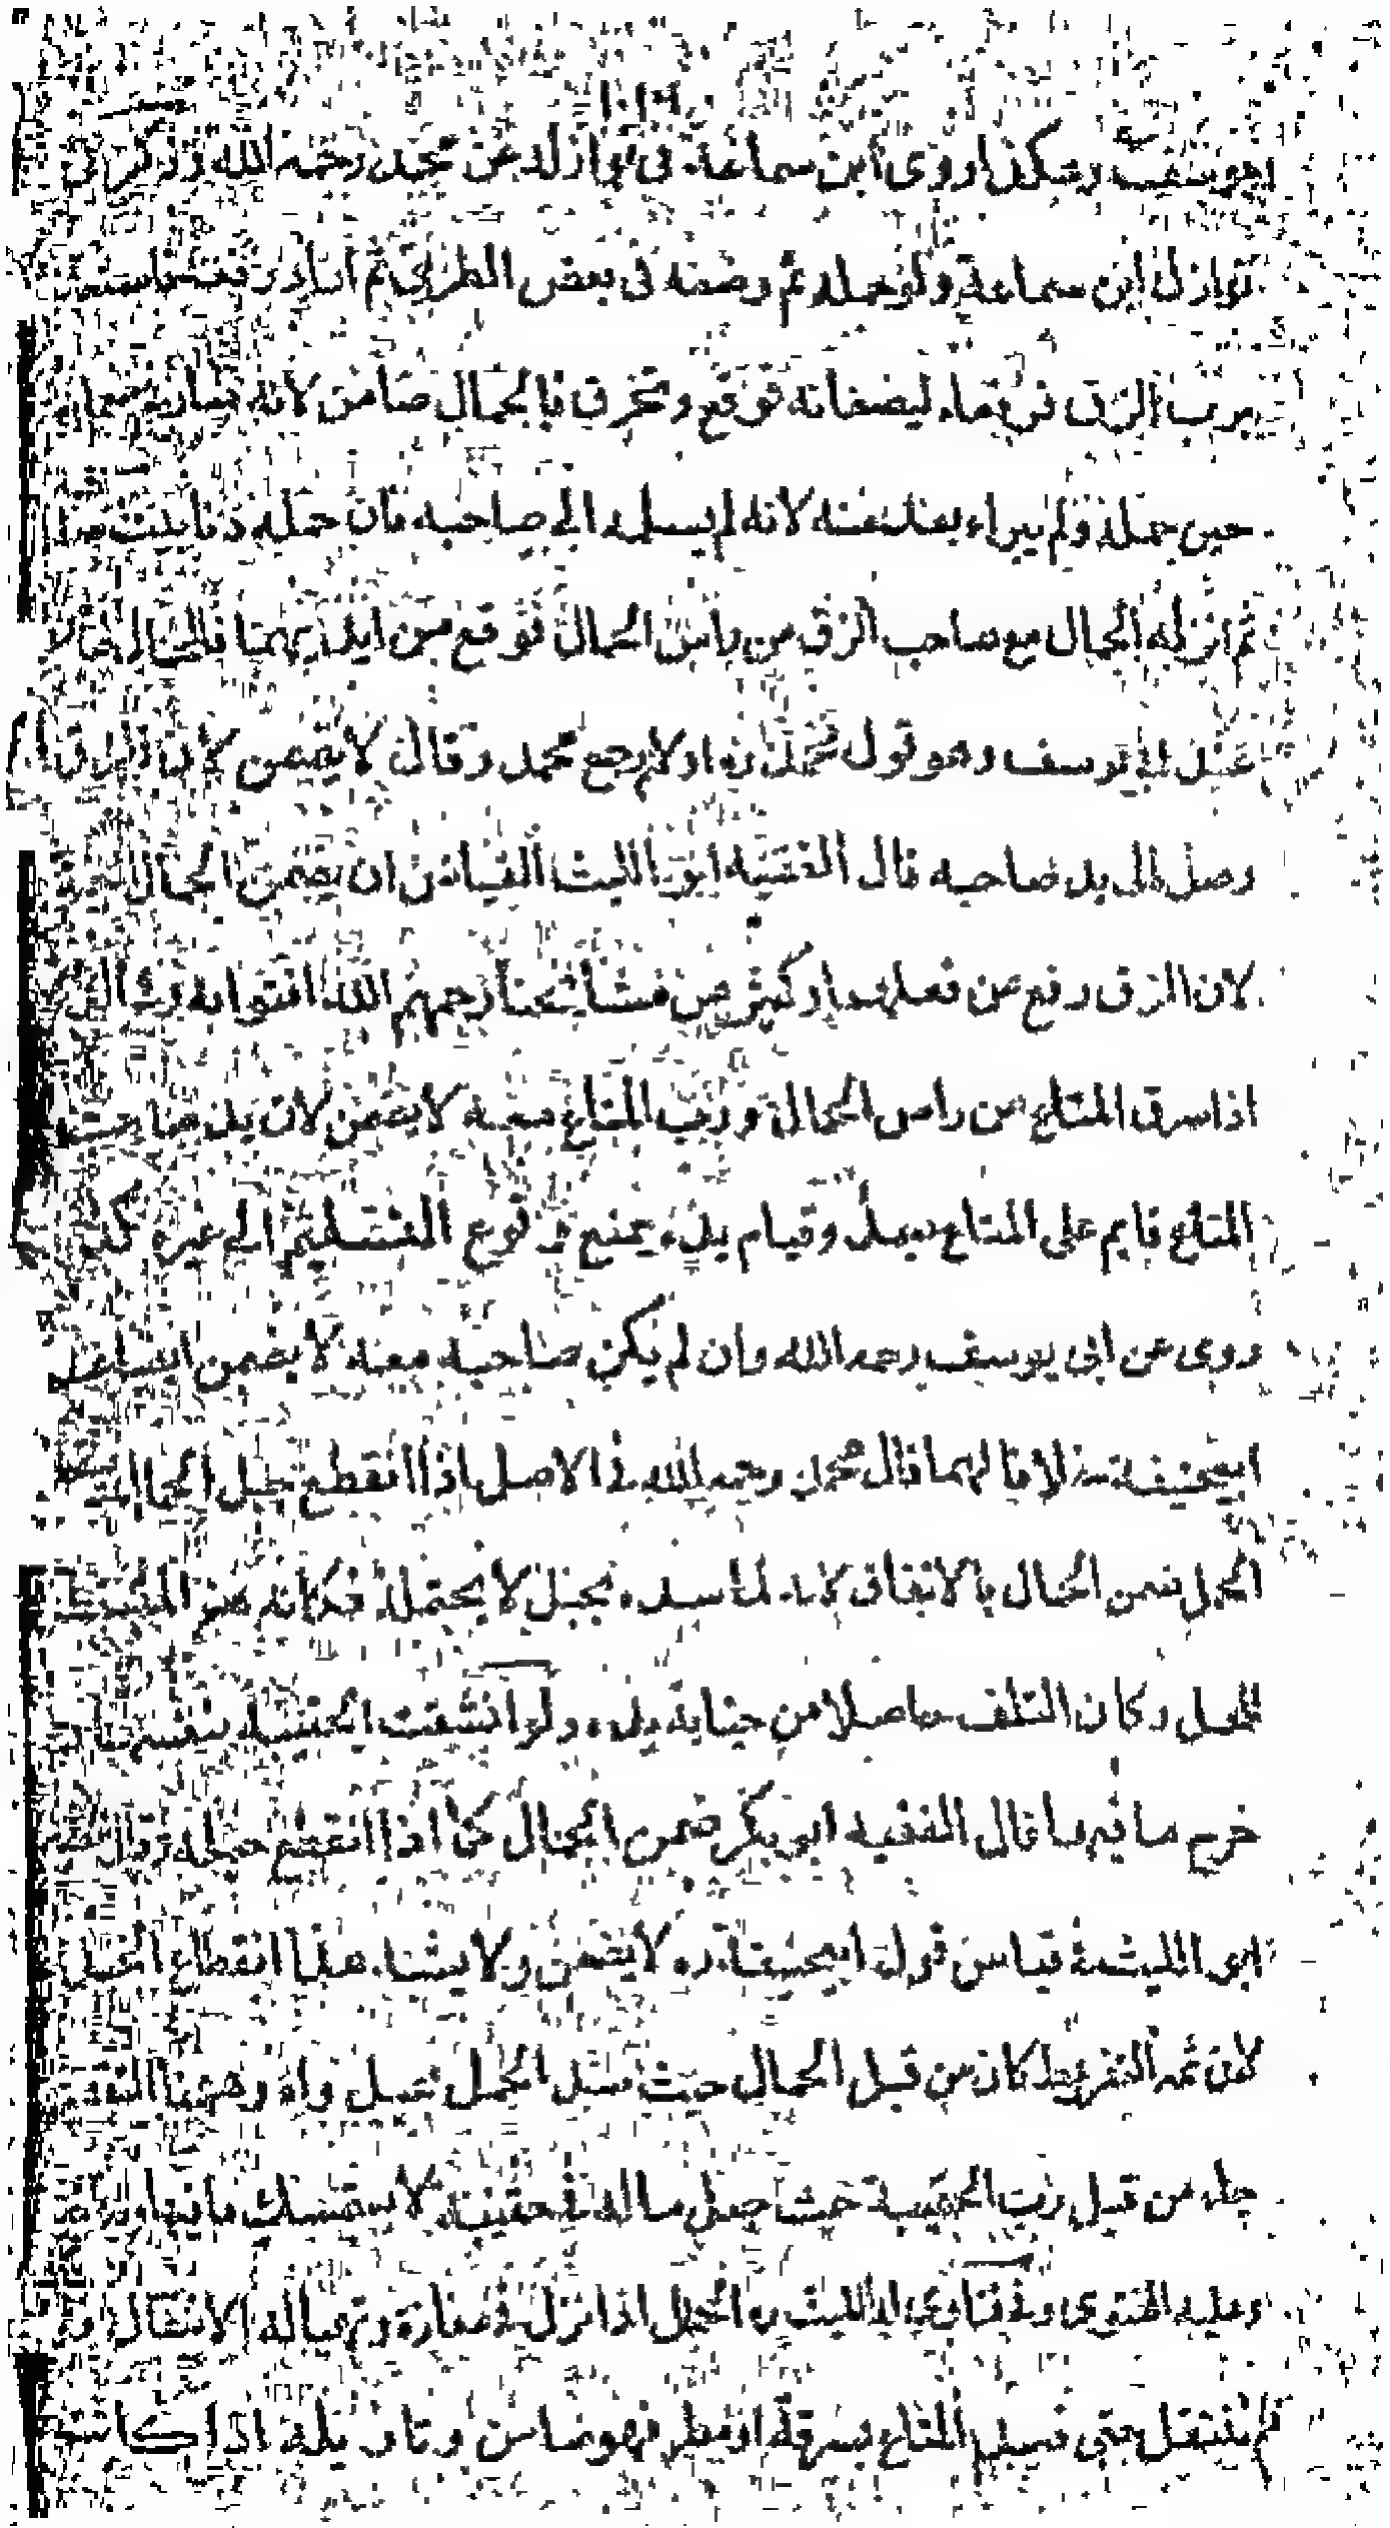 ابو يوسف وهكذا روى ابن سماعة في نوازله عن محمد رحمه الله وذكر في
نوازل ابن سماعة ولو حمله ثم وضعه في بعض الطريق ثم اراد رفعه
برب الزق فرفعاه ليضعانه فوقع وتخرق فالحمال ضامن لانه صار
حين حمله ولم يبراء بعد عنه لانه لم يسلمه الى صاحبه فان حمله
ثم انزله الحمال مع صاحب الزق من راس الحمال فوقع من ايديهما فالحمال
عند ابي يوسف وهو قول محمد ره اولا ثم رجع محمد وقال لا يضمن لان الزق
وصل الى يد صاحبه قال الفقيه ابو الليث القياس ان يضمن الحمال
لان الزق وقع من فعلهما وكثير من مشايخنا رحمهم الله افتوا به
اذا سرق المتاع من راس الحمال ورب المتاع معه لا يضمن لان يد صاحب
المتاع قايم على المتاع وقيام يده يمنع وقوع التسليم الى غيره
روى عن ابي يوسف رحمه الله وان لم يكن صاحبه معه لا يضمن
ابيحنيفة خلافا لهما قال محمد رحمه الله في الاصل اذا انقطع حبل الحمال
الحمل ضمن الحمال بالاتفاق لانه لما شده بحبل لا يحتمله فكانه هو
للحمل وكان التلف حاصلا من جناية يده ولو انشقت الحقيبة بنفسها
خرج ما فيها قال الفقيه ابو بكر ضمن الحمال كما اذا انقطع حبله وقال
ابو الليث في قياس قول ابيحنيفة ره لا يضمن ولا يشبه هذا انقطاع الحبل
لان ثمه التفريط كان من قبل الحمال حيث شد الحمل بحبل واه وههنا
جاء من قبل رب الحقيبة حيث جعل ماله في حقيبة لا يستمسك ما فيها
وعليه الفتوى وفي فتاوى ابي الليث ره الحمال اذا نزل في مفازة وتهيا له الانتقال
فلم ينتقل حتى فسد المتاع بسرقة او مطر فهو ضامن وتاويله اذا كانت